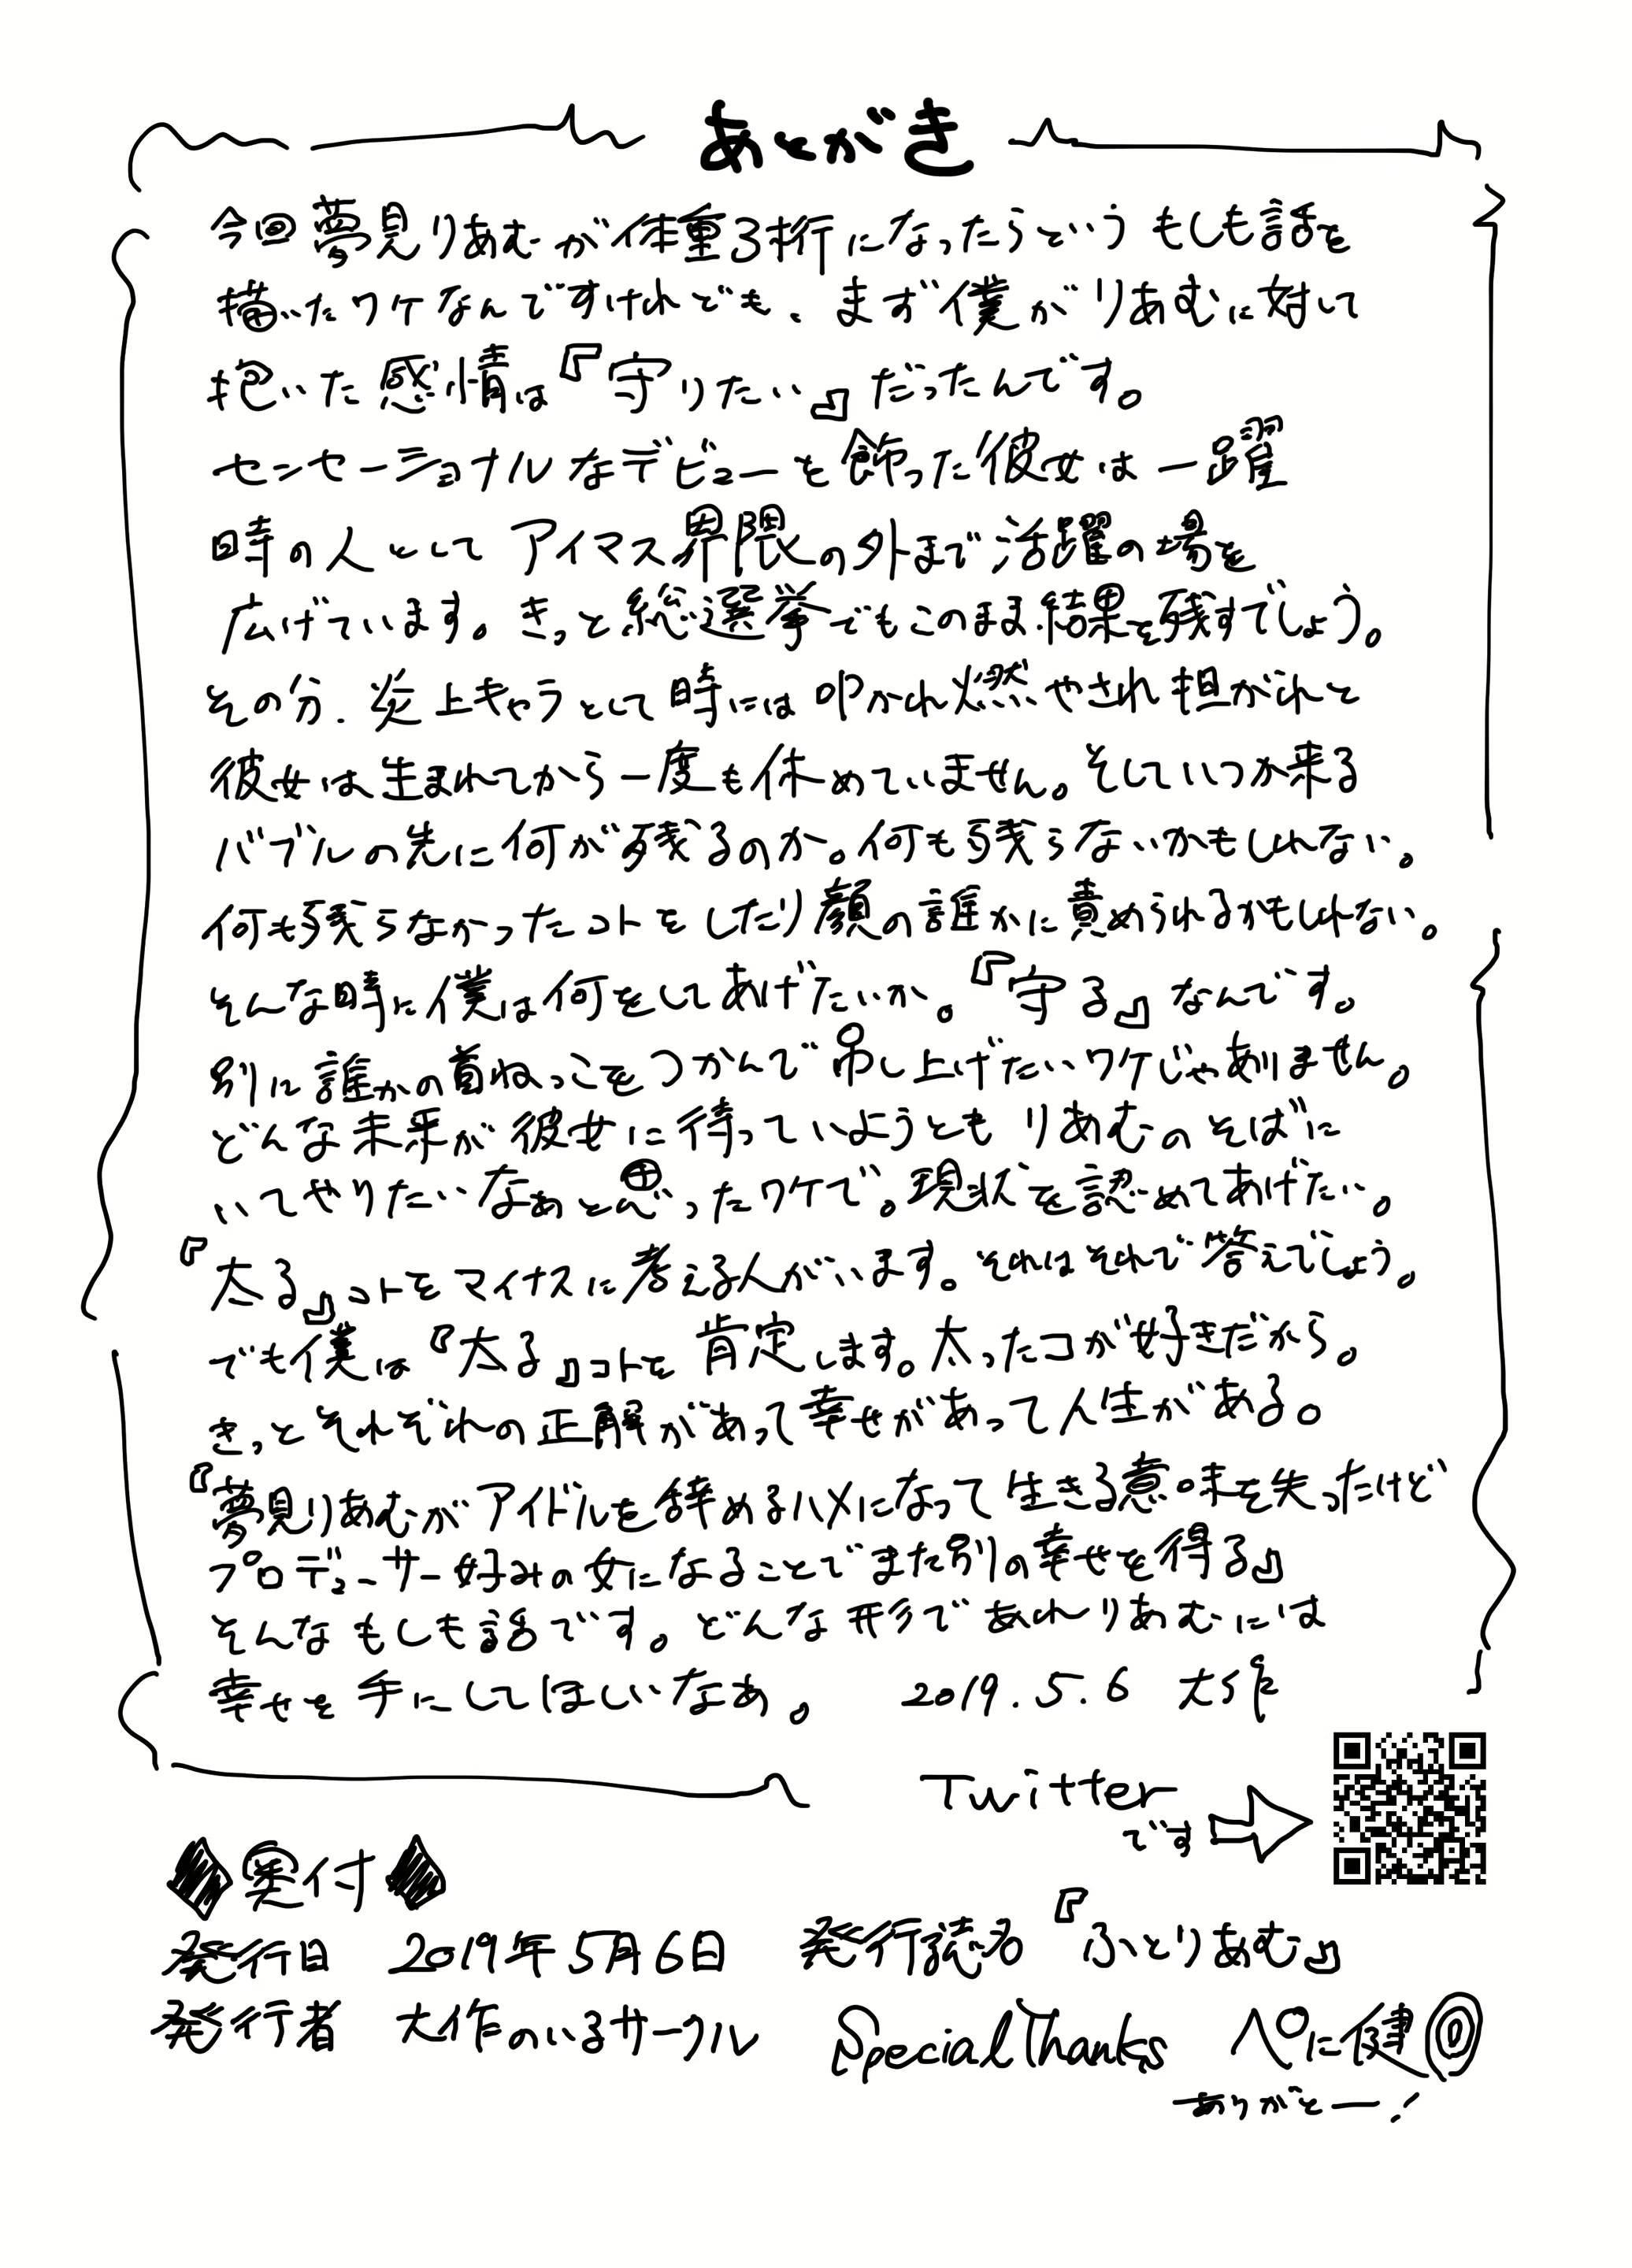 あとがき
今回夢見りあむが体重3桁になったらという もしも話を
描いたワケなんですけれども、まず僕がりあむに対して
抱いた感情は『守りたい』だったんです。
センセーショナルなデビューを飾った彼女は一躍
時の人として アイマス界隈の外まで活躍の場を
広げています。きっと総選挙でもこのまま結果を残すでしょう。
その分、炎上キャラとして時には叩かれ燃やされ担がれと
彼女は生まれてから一度も休めていません。そしていつか来る
バブルの先に何が残るのか。何も残らないかもしれない。
何も残らなかったコトをしたり顔の誰かに責められるかもしれない。
そんな時に僕は何をしてあげたいか。『守る』なんです。
別に誰かの首ねっこをつかんで吊し上げたいワケじゃありません。
どんな未来が彼女に待っていようとも りあむのそばに
いてやりたいなぁと思ったワケで。現状を認めてあげたい。
『太る』コトをマイナスに考える人がいます。それはそれで答えでしょう。
でも僕は『太る』コトを肯定します。太ったコが好きだから。
きっとそれぞれの正解があって幸せがあって人生がある。
『夢見りあむがアイドルを辞めるハメになって生きる意味を失ったけど
プロデューサー好みの女になることでまた別の幸せを得る』
そんなもしも話です。どんな形であれりあむには
幸せを手にしてほしいなあ。 2019.5.6 大作
Twitter
です
◆奥付◆
発行日 2019年5月6日 発行誌名『ふとりあむ』
発行者 大作のいるサークル Special Thanks ぺに健
ありがとー!